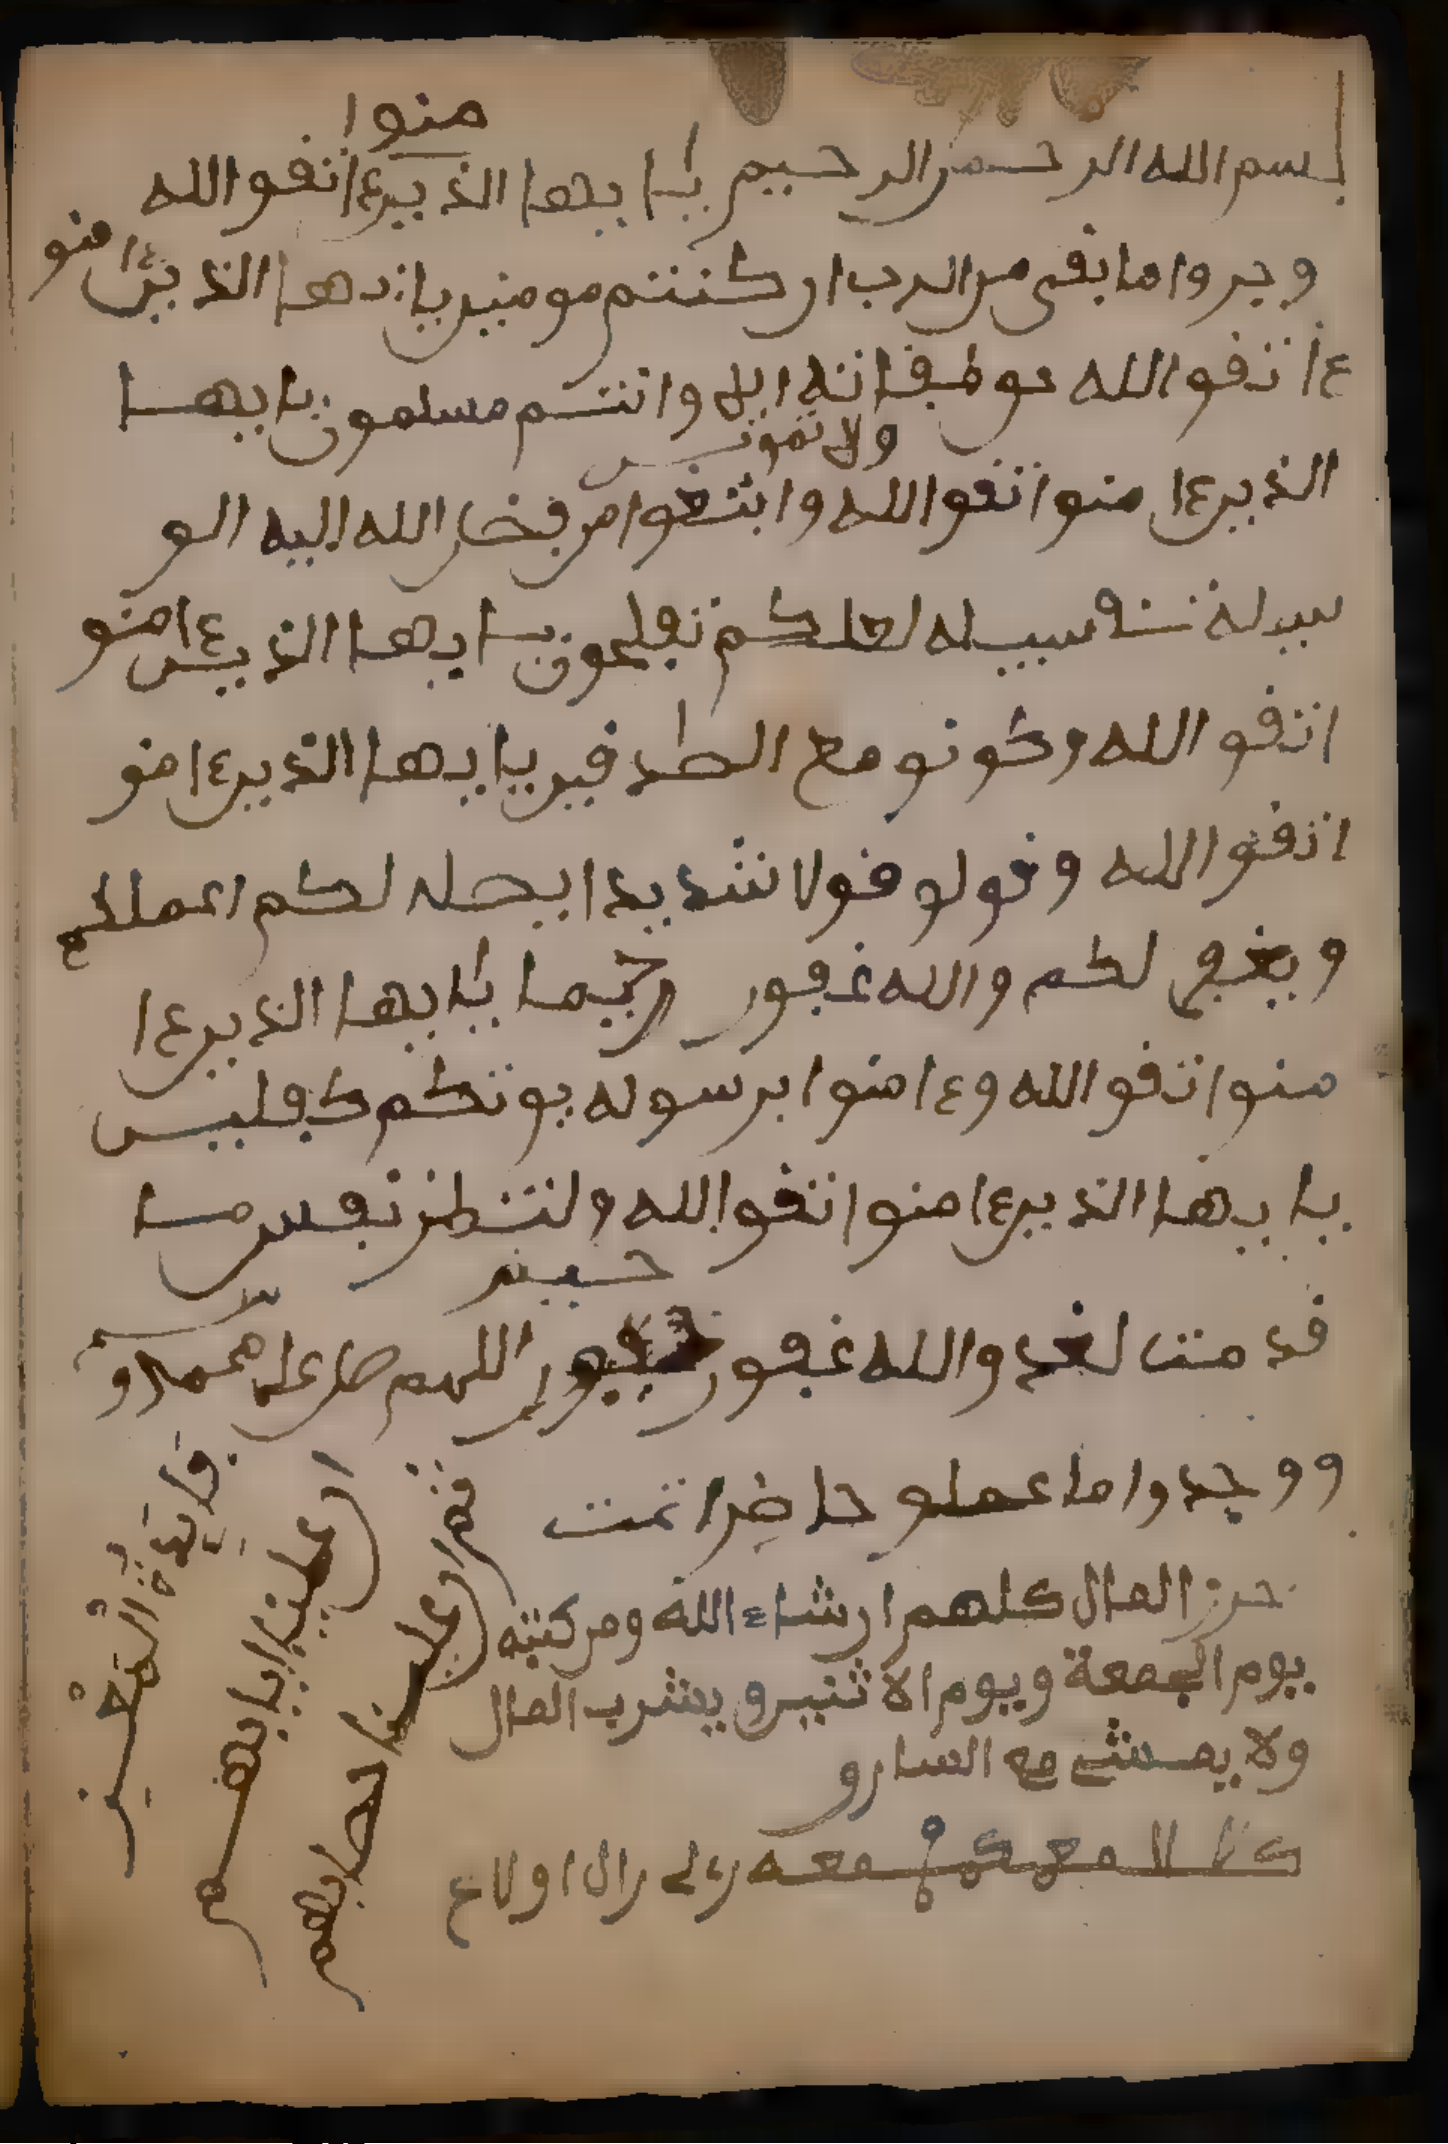 منوا
بسم الله الرحمن الرحيم يا ايها الذين ءا اتفوا الله
وجروا ما بفى من الرب ان كنتم مومنين يا ايها الذين ءامنو
ءا تفوا الله حو طفاته الى وانتم مسلمون يا ايها
ولا تموتن
الذين ءا منوا اتفوا الله وابتغوا من فضل الله اليه الو
سيلة لعلكم تفلحون يا ايها الذين ءامنو
اتفو الله وكونو مع الصدفين يا ايها الذين ءامنو
اتفوا الله وفولو فولا شديدا يصله لكم اعملكم
ويغفر لكم والله غفور رحيما يا ايها الذين ءا
منوا تفوا الله وءامنوا برسوله يوتكم كفلين
يا ايها الذين ءامنوا اتفوا الله ولتنظر نفس ما
خبير
فدمت لغد والله غفور اللهم صل على محمد و
ووجدوا ما عملو حاضرا تمت
حرز المال كلهم ان شاء الله ومن كتبه
يوم الجمعة ويوم الاثنين ويشرب المال
ولا يمشي مع السارو
ثم ان علينا حصابهم
ان علينا ايابهم